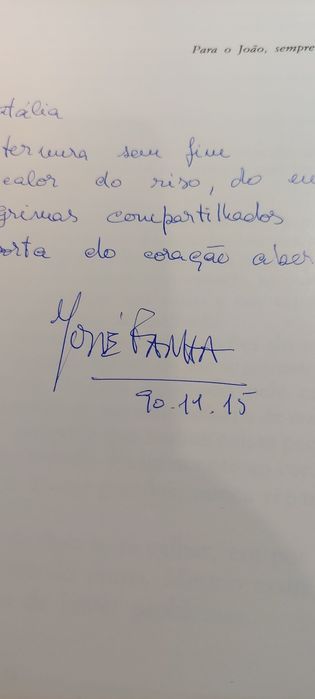 Para o João, sempre
atália
ternura sem fim
calor do riso, do en
grimas compartilhados
orta do coração aber
José Fanha
90.11.15